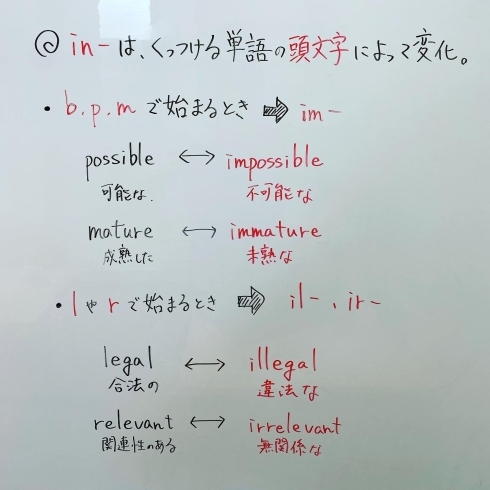 ◎ in-は、くっつける単語の頭文字によって変化。
・b.p.mで始まるとき ⇨ im-
possible ⟷ impossible
可能な. 不可能な
mature ⟷ immature
成熟した 未熟な
・lやrで始まるとき ⇨ il-、ir-
legal ⟷ illegal
合法の 違法な
relevant ⟷ irrelevant
関連性のある 無関係な